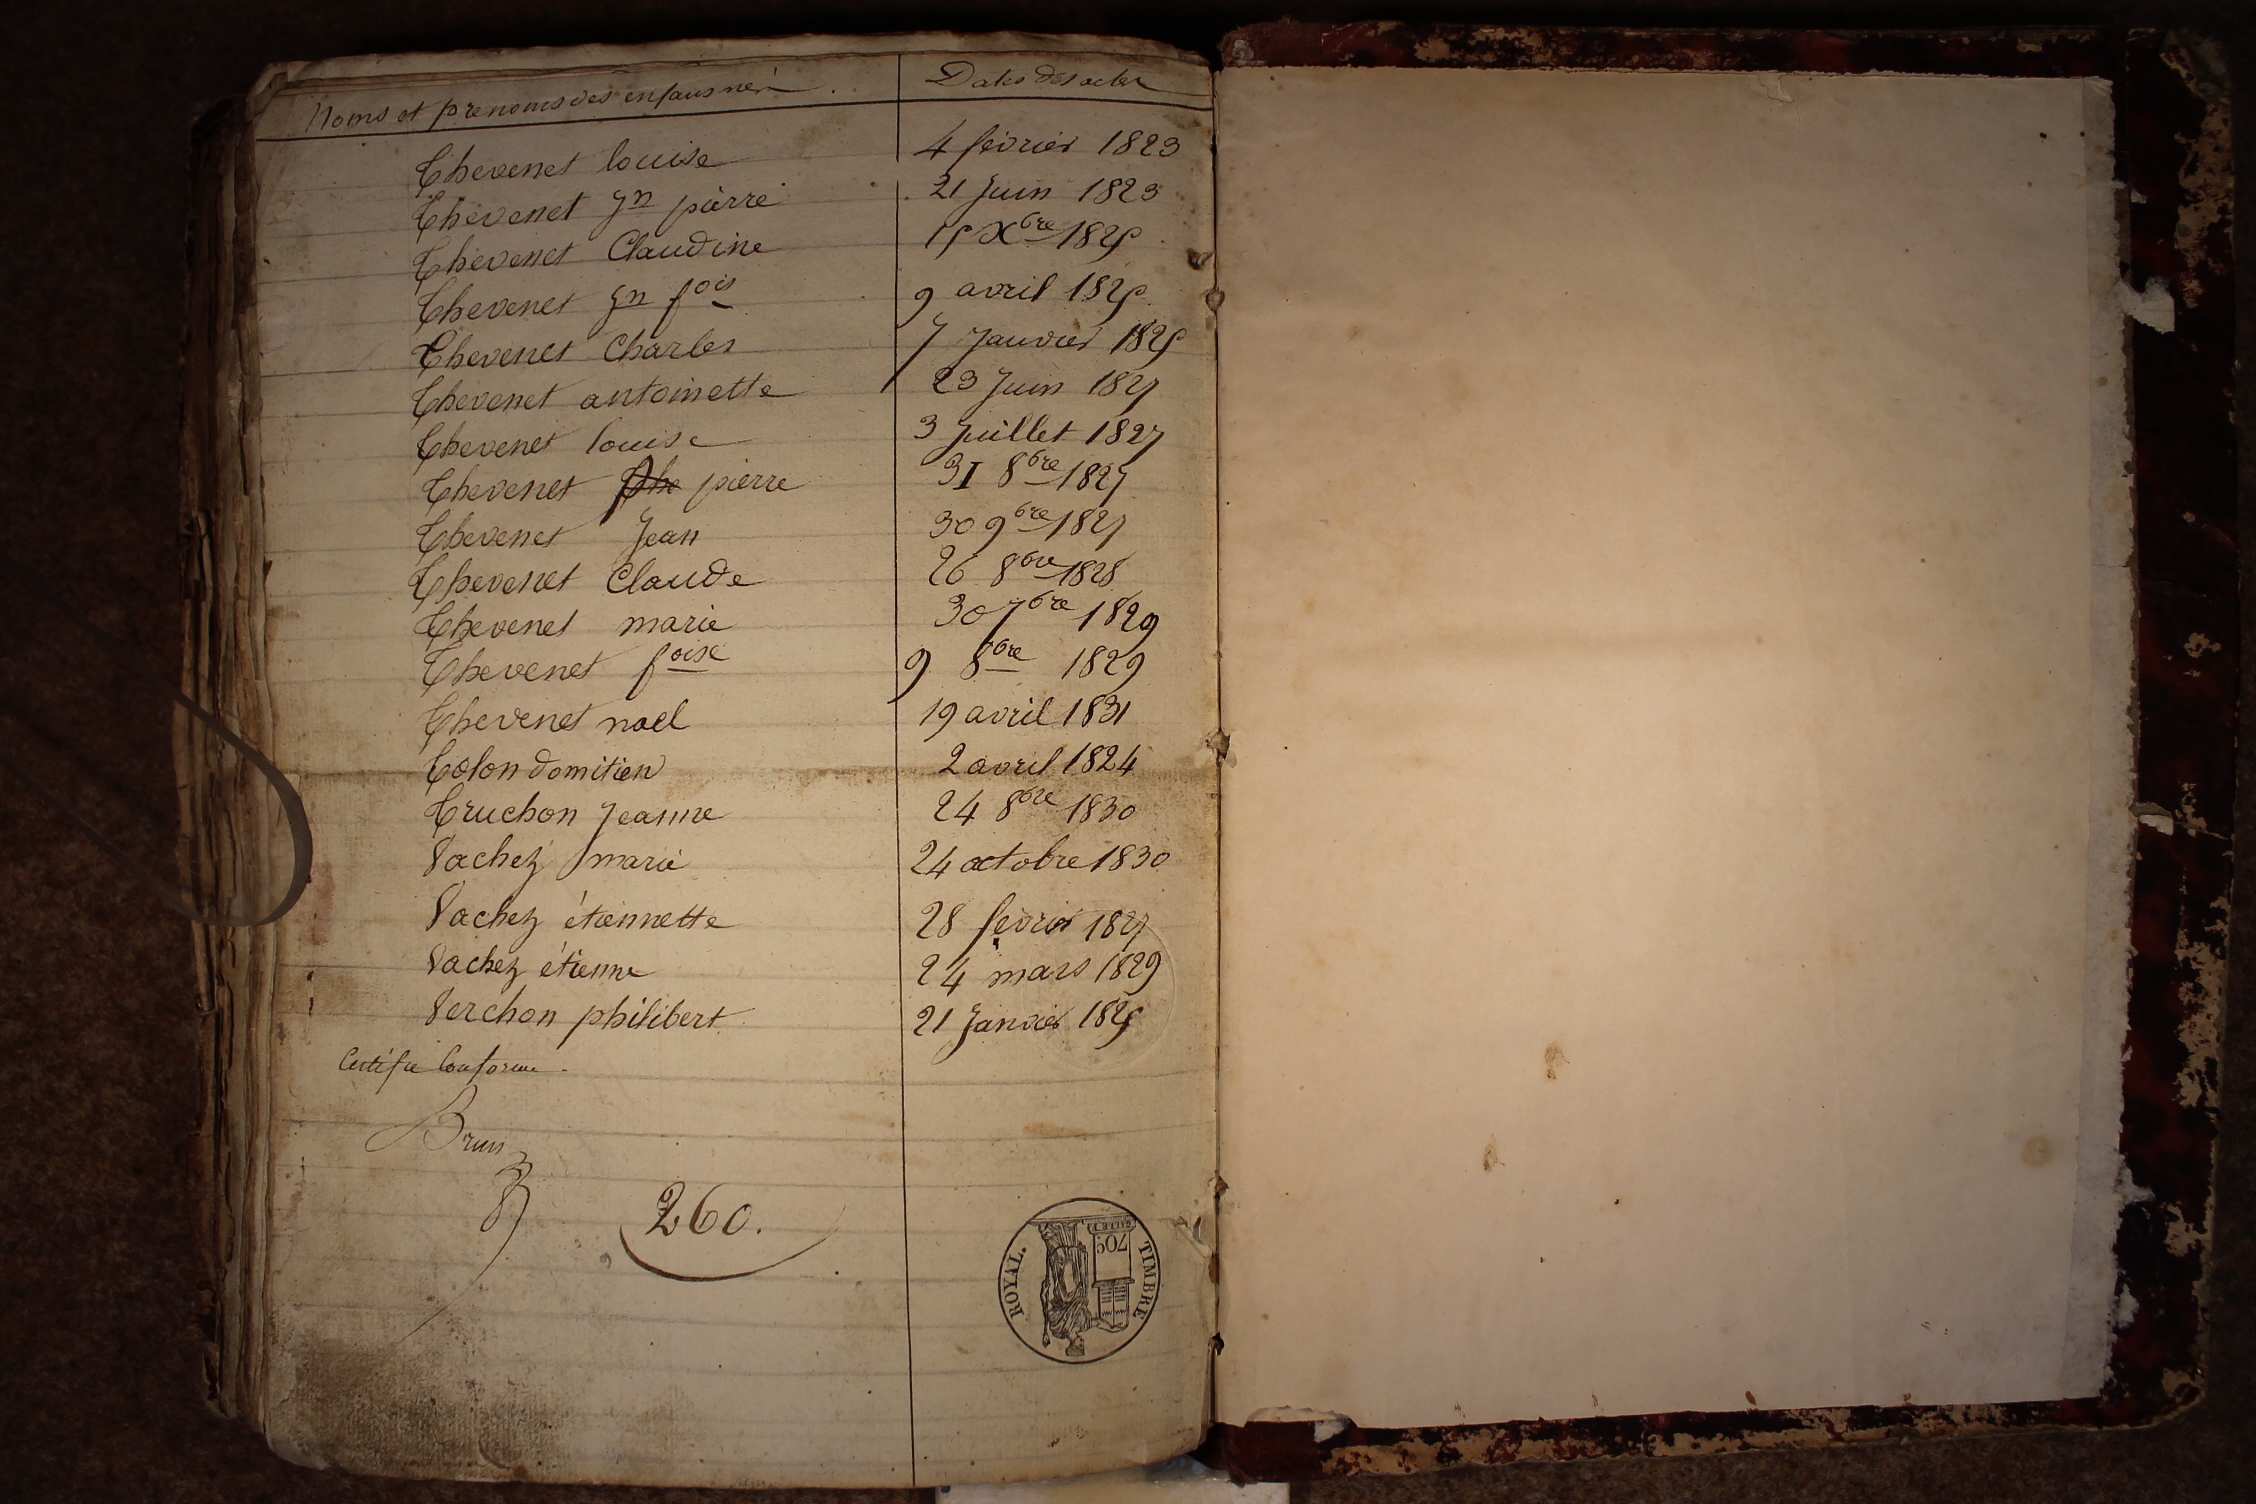 Noms et prenoms des enfans nés. Dates des actes
Thevenet louise 4 février 1823
Thevenet Jn pierre 21 Juin 1823
Thevenet Claudine 15 Xbre 1825
Thevenet Jn fois 9 avril 1825
Thevenet Charles 7 Janvier 1825
Thevenet antoinette 23 Juin 1827
Thevenet louise 3 Juillet 1827
Thevenet pierre 31 8bre 1827
Thevenet Jean 30 9bre 1827
Thevenet Claude 26 8bre 1828
Thevenet marie 30 7bre 1829
Thevenet foise 9 8bre 1829
Thevenet noel 19 avril 1831
Tolon domitien 2 avril 1824
Truchon Jeanne 24 8bre 1830
Vachez marie 24 octobre 1830
Vachez étiennette 28 février 1827
Vachez étienne 24 mars 1829
Verchon philibert 21 Janvier 1825
Certifié Conforme
Brun
260.
TIMBRE ROYAL.
70c